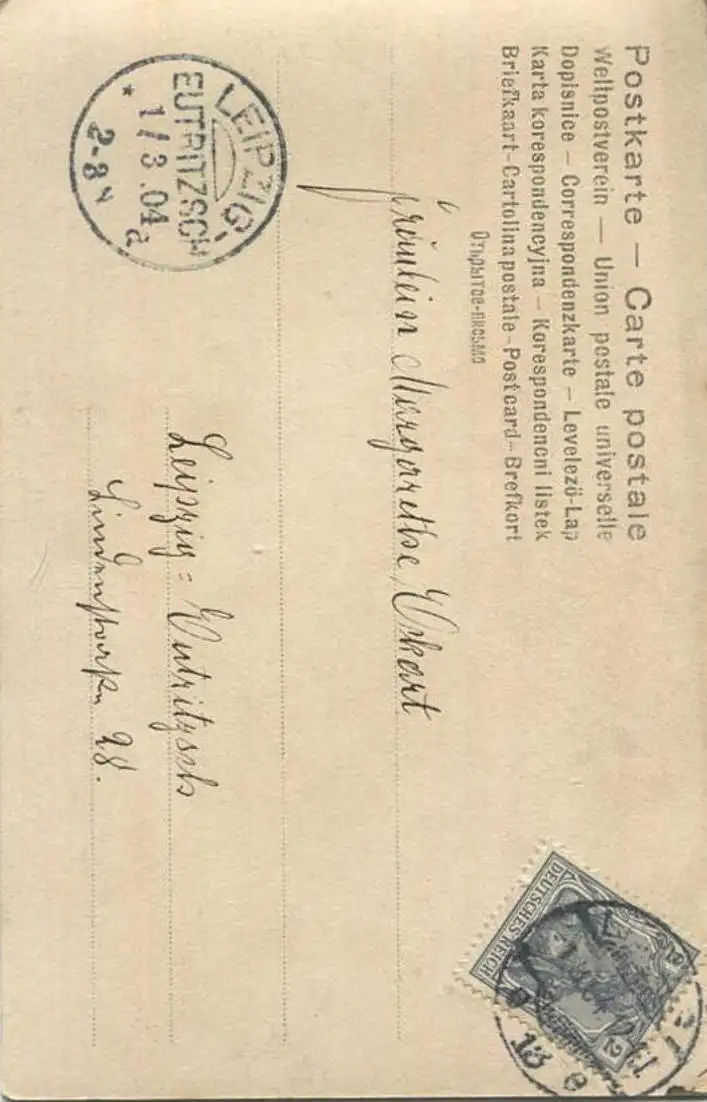 Postkarte — Carte postale
Weltpostverein — Union postale universelle
Dopisnice — Correspondenzkarte — Levelező-Lap
Karta korespondencyjna — Korespondencni listek
Briefkaart - Cartolina postale - Postcard - Brefkort
Открытое-письмо
LEIPZIG-
EUTRITZSCH
1/3.04
2-3 N
* a
Fräulein Margarethe Eckart
Leipzig = Eutritzsch
Lindenstraße 28.
DEUTSCHES REICH